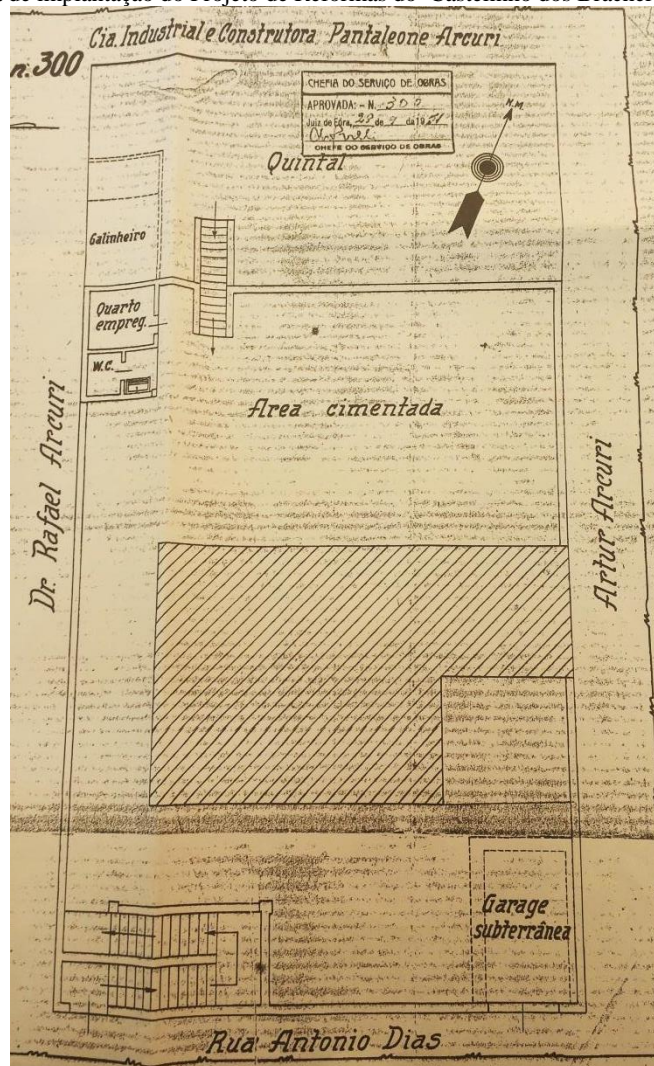 de Implantação do Projeto de Reformas do "Castelinho dos Bracher
Cia. Industrial e Construtora Pantaleone Arcuri
n. 300
CHEFIA DO SERVIÇO DE OBRAS
APROVADA: - N. 300
Juiz de Fóra, 28 de 7 de 19 51
CHEFE DO SERVIÇO DE OBRAS
N.M.
Quintal
Galinheiro
Quarto
empreg.
W.C.
Area cimentada
Dr. Rafael Arcuri
Artur Arcuri
Garage
subterrânea
Rua Antonio Dias